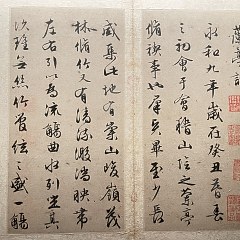 永和九年歲在癸丑暮春
之初會于會稽山陰之蘭亭
脩禊事也羣賢畢至少長
咸集此地有崇山峻嶺茂
林脩竹又有清流激湍映帶
左右引以為流觴曲水列坐其
次雖無絲竹管弦之盛一觴